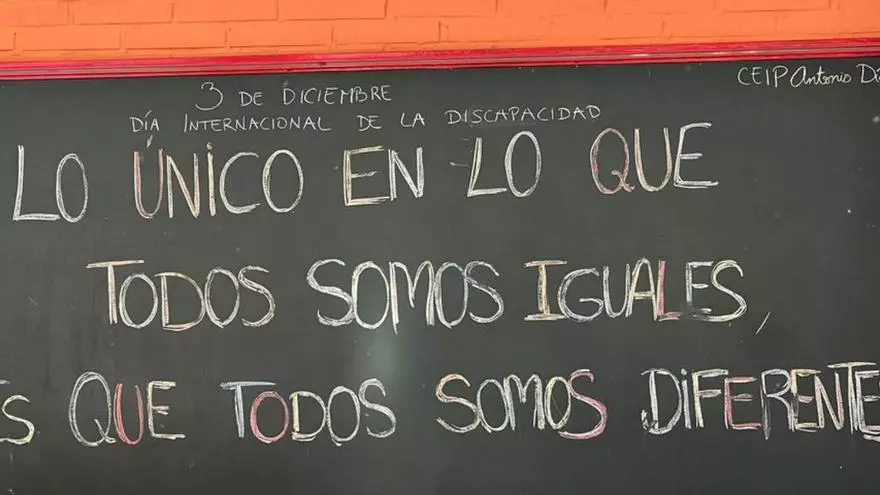 3 DE DICIEMBRE
CEIP Antonio
DÍA INTERNACIONAL DE LA DISCAPACIDAD
LO ÚNICO EN LO QUE
TODOS SOMOS IGUALES,
QUE TODOS SOMOS DIFERENTES